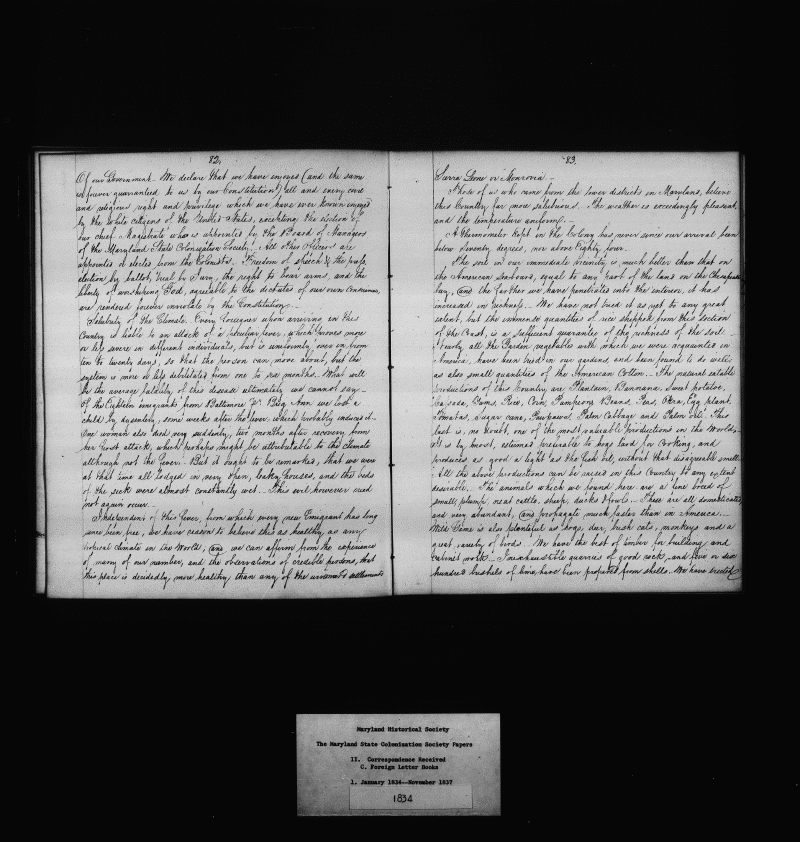 82.
Of our Government. We declare that we have enjoyed (and the same
is forever guaranteed to us by our Constitution) all and every civil
and religious right and privilege which we have ever known enjoyed
by the white citizens of the United States, excepting the election of
our chief Magistrate who is appointed by the Board of Managers
of the Maryland State Colonization Society. All other Officers are
appointed or elected from the Colonists. Freedom of speech & the press,
election by ballot, trial by Jury, the right to bear arms, and the
liberty of worshiping God, agreeable to the dictates of our own consciences,
are rendered forever inviolate by the Constitution.
Salubrity of the Climate. Every foreigner upon arriving in this
Country is liable to an attack of a peculiar fever, which proves more
or less severe in different individuals, but is uniformly over in from
ten to twenty days, so that the person can move about, but the
system is more or less debilitated from one to six months. What will
be the average fatality of this disease ultimately we cannot say.
Of the Eighteen emigrants from Baltimore pr. Brig Ann we lost a
child by dysentery, some weeks after the fever, which probably induced it.
One woman also died very suddenly, two months after recovery from
her first attack, which perhaps might be attributable to the climate
although not the fever. But it ought to be remarked, that we were
at that time all lodged in very open, leaky houses, and the beds
of the sick were almost constantly wet. This evil however need
not again occur.
Independent of this fever, from which every new Emigrant has long
since been free, we have reason to believe this as healthy as any
tropical climate in the World, (and we can affirm from the experience
of many of our number, and the observations of credible persons, that
this place is decidedly more healthy than any of the windward settlements
83.
Sierra Leone or Monrovia.
Those of us who came from the lower districts in Maryland, believe
this Country far more salubrious. The weather is exceedingly pleasant,
and the temperature uniform.
A thermometer kept in the Colony has never since our arrival been
below seventy degrees, nor above Eighty four.
The soil in our immediate vicinity is much better than that on
the American Seaboard, equal to any part of the land on the Chesapeake
bay, (and the farther we have penetrated into the interior, it has
increased in richness. We have not tried it as yet to any great
extent, but the immense quantities of rice shipped from this section
of the Coast, is a sufficient guarantee of the richness of the soil.
Nearly all the Garden vegetables with which we were acquainted in
America, have been tried in our gardens, and been found to do well;
as also small quantities of the American Cotton. The natural eatable
productions of this Country are Plantain, Bannana, Sweet potatoe,
Cassada, Yams, Rice, Corn, Pumpkins, Beans, Peas, Okra, Egg plant,
Tomatas, Sugar cane, Pawpaws, Palm Cabbage and Palm oil. This
last is, no doubt, one of the most valuable productions in the World,
it is by most, esteemed preferable to hogs lard for Cooking, and
produces as good a light as the fish oil, without that disagreeable smell.
All the above productions can be raised in this Country to any extent
desirable. The animals which we found here are a fine breed of
small, plump, neat cattle, sheep, ducks & fowls. These are all domesticated
and very abundant, (and propagate much faster than in America.
Wild Game is also plentiful as hogs, deer, bush cats, monkeys and a
great variety of birds. We have the best of timber for building and
cabinet work. Inexhaustible quarries of good rock, and five or six
hundred bushels of lime, have been prepared from shells. We have erected
Maryland Historical Society
The Maryland State Colonization Society Papers
II. Correspondence Received
C. Foreign Letter Books
1. January 1834--November 1837
1834